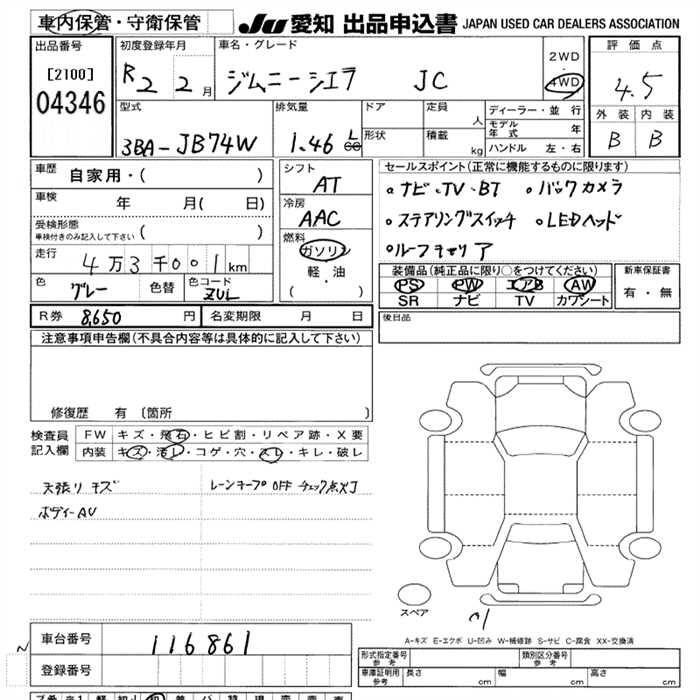 車内保管・守衛保管
JU 愛知 出品申込書 JAPAN USED CAR DEALERS ASSOCIATION
出品番号
[2100]
04346
初度登録年月
R2 2月
車名・グレード
ジムニーシエラ JC
2WD
・
4WD
評価点
4.5
外装 内装
B B
型式
3BA-JB74W
排気量
1.46 L
cc
ドア
形状
定員 人
積載 kg
ディーラー・並行
モデル年式 年
ハンドル 左・右
車歴 自家用・( )
車検 年 月( 日)
受検形態
車検付きのみ記入して下さい ( )
走行 4万3千001km
色 グレー 色替 色コード ZUL
シフト
AT
冷房
AAC
燃料
ガソリン
軽・油
( )
セールスポイント(正常に機能するものに限ります)
。ナビ、TV、BT 。バックカメラ
。ステアリングスイッチ 。LEDヘッド
。ルーフキャリア
装備品(純正品に限り〇をつけてください)
PS PW エアB AW
SR ナビ TV カワシート
新車保証書
有・無
R券 8,650 円 名変期限 月 日
後日品
注意事項申告欄(不具合内容等は具体的に記入して下さい)
修復歴 有〔箇所 〕
検査員記入欄
FW キズ・飛石・ヒビ割・リペア跡・X要
内装 キズ・汚レ・コゲ・穴・スレ・キレ・破レ
天張りキズ レーンキープOFFチェック点灯
ボディーAU
スペア
A-キズ E-エクボ U-凹み W-補修跡 S-サビ C-腐食 XX-交換済
車台番号 116861
登録番号
形式指定番号 参考
類別区分番号 参考
車庫証明用 参考 長さ cm 幅 cm 高さ cm